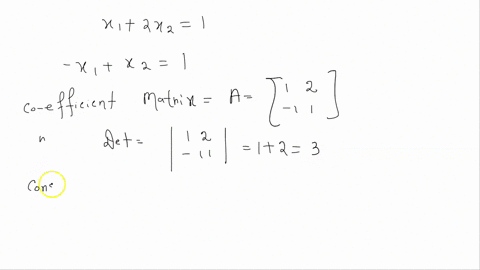 x₁ + 2x₂ = 1
-x₁ + x₂ = 1
Co-efficient Matrix = A = [1 2 -1 1]
" Det = |1 2 -1 1| = 1+2 = 3
Cone